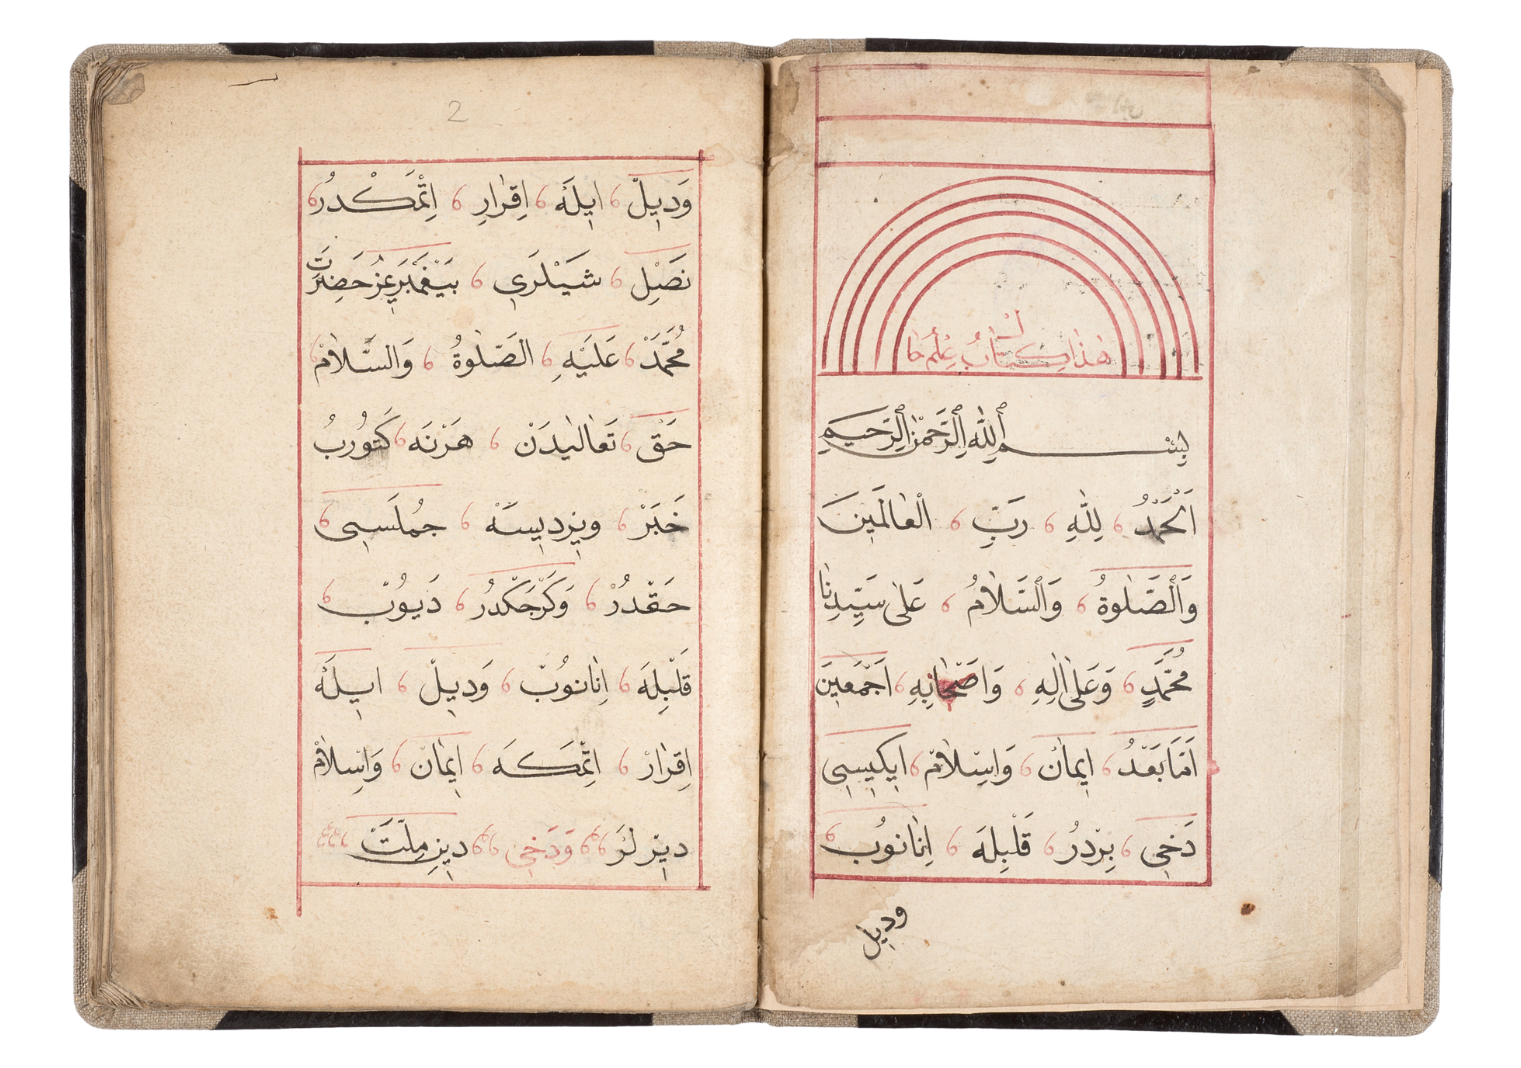 هٰذَا كِتَابُ عِلْمِ حَال
بِسْمِ اللّٰهِ الرَّحْمٰنِ الرَّحِيمِ
اَلْحَمْدُ لِلّٰهِ رَبِّ الْعَالَمِينَ
وَالصَّلٰوةُ وَالسَّلَامُ عَلٰى سَيِّدِنَا
مُحَمَّدٍ وَعَلٰى اٰلِهِ وَاَصْحَابِهِ اَجْمَعِينَ
اَمَّا بَعْدُ اِيمَانْ وَاِسْلَامْ اِيكِيسِى
دَخِى بِرْدُرْ قَلْبِلَه اِنَانُوبْ
وَدِيلْ
وَدِيلْ اِيلَه اِقْرَارِ اِتْمَكْدُرْ
نَصْلِ شَيْلَرَى بَيْغَمْبَرِمُزْ حَضِرَتْ
مُحَمَّدْ عَلَيْهِ الصَّلٰوةُ وَالسَّلَامْ
حَقْ تَعَالٰيدَنْ هَرْنَه كَتُورُبْ
خَبَرْ وِيرْدِيسَه جُمْلَسِى
حَقْدُرْ وَكَرْجَكْدُرْ دَيُوبْ
قَلْبِلَه اِنَانُوبْ وَدِيلْ اِيلَه
اِقْرَارْ اِتْمَكَه اِيمَانْ وَاِسْلَامْ
دِيرْلَرْ وَدَخِى دِينِ مِلَّتْ
2